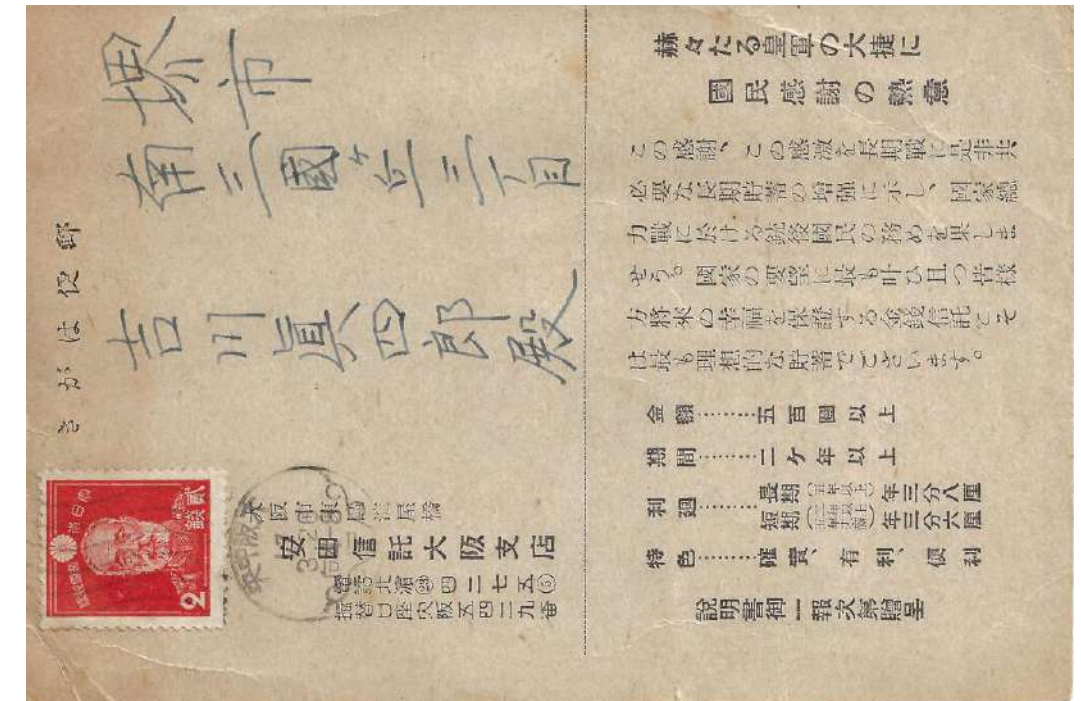 郵便はがき
堺市
南三國ヶ丘三丁目
吉川眞四郎殿
大日本帝國郵便
貳錢
2
大阪市東區淀屋橋
安田信託大阪支店
電話北濱㉓四二七五⑤
振替口座大阪五四二九番
赫々たる皇軍の大捷に
國民感謝の熱意
この感謝、この感激を長期戰に是非共
必要な長期貯蓄の增强に示し、國家總
力戰に於ける銃後國民の務めを果しま
せう。國家の要望に最も叶ひ且つ皆樣
方將來の幸福を保證する金錢信託こそ
は最も理想的な貯蓄でございます。
金額………五百圓以上
期間………二ケ年以上
利廻
長期(五年以上)年三分八厘
短期 年三分六厘
特色………確實、有利、便利
說明書御一報次第贈呈